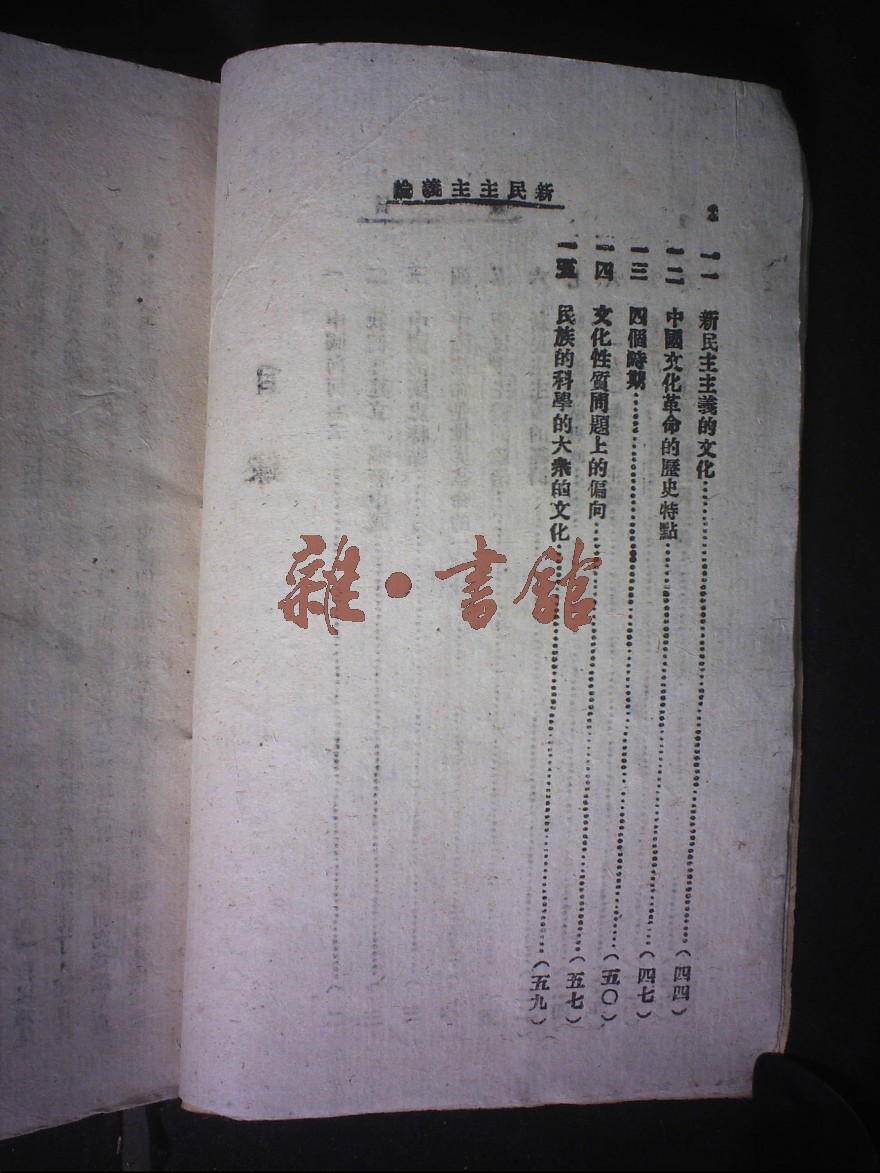 新民主主義論
2
一一 新民主主義的文化……(四四)
一二 中國文化革命的歷史特點……(四七)
一三 四個時期……(五〇)
一四 文化性質問題上的偏向……(五七)
一五 民族的科學的大衆的文化……(五九)
雜·書館